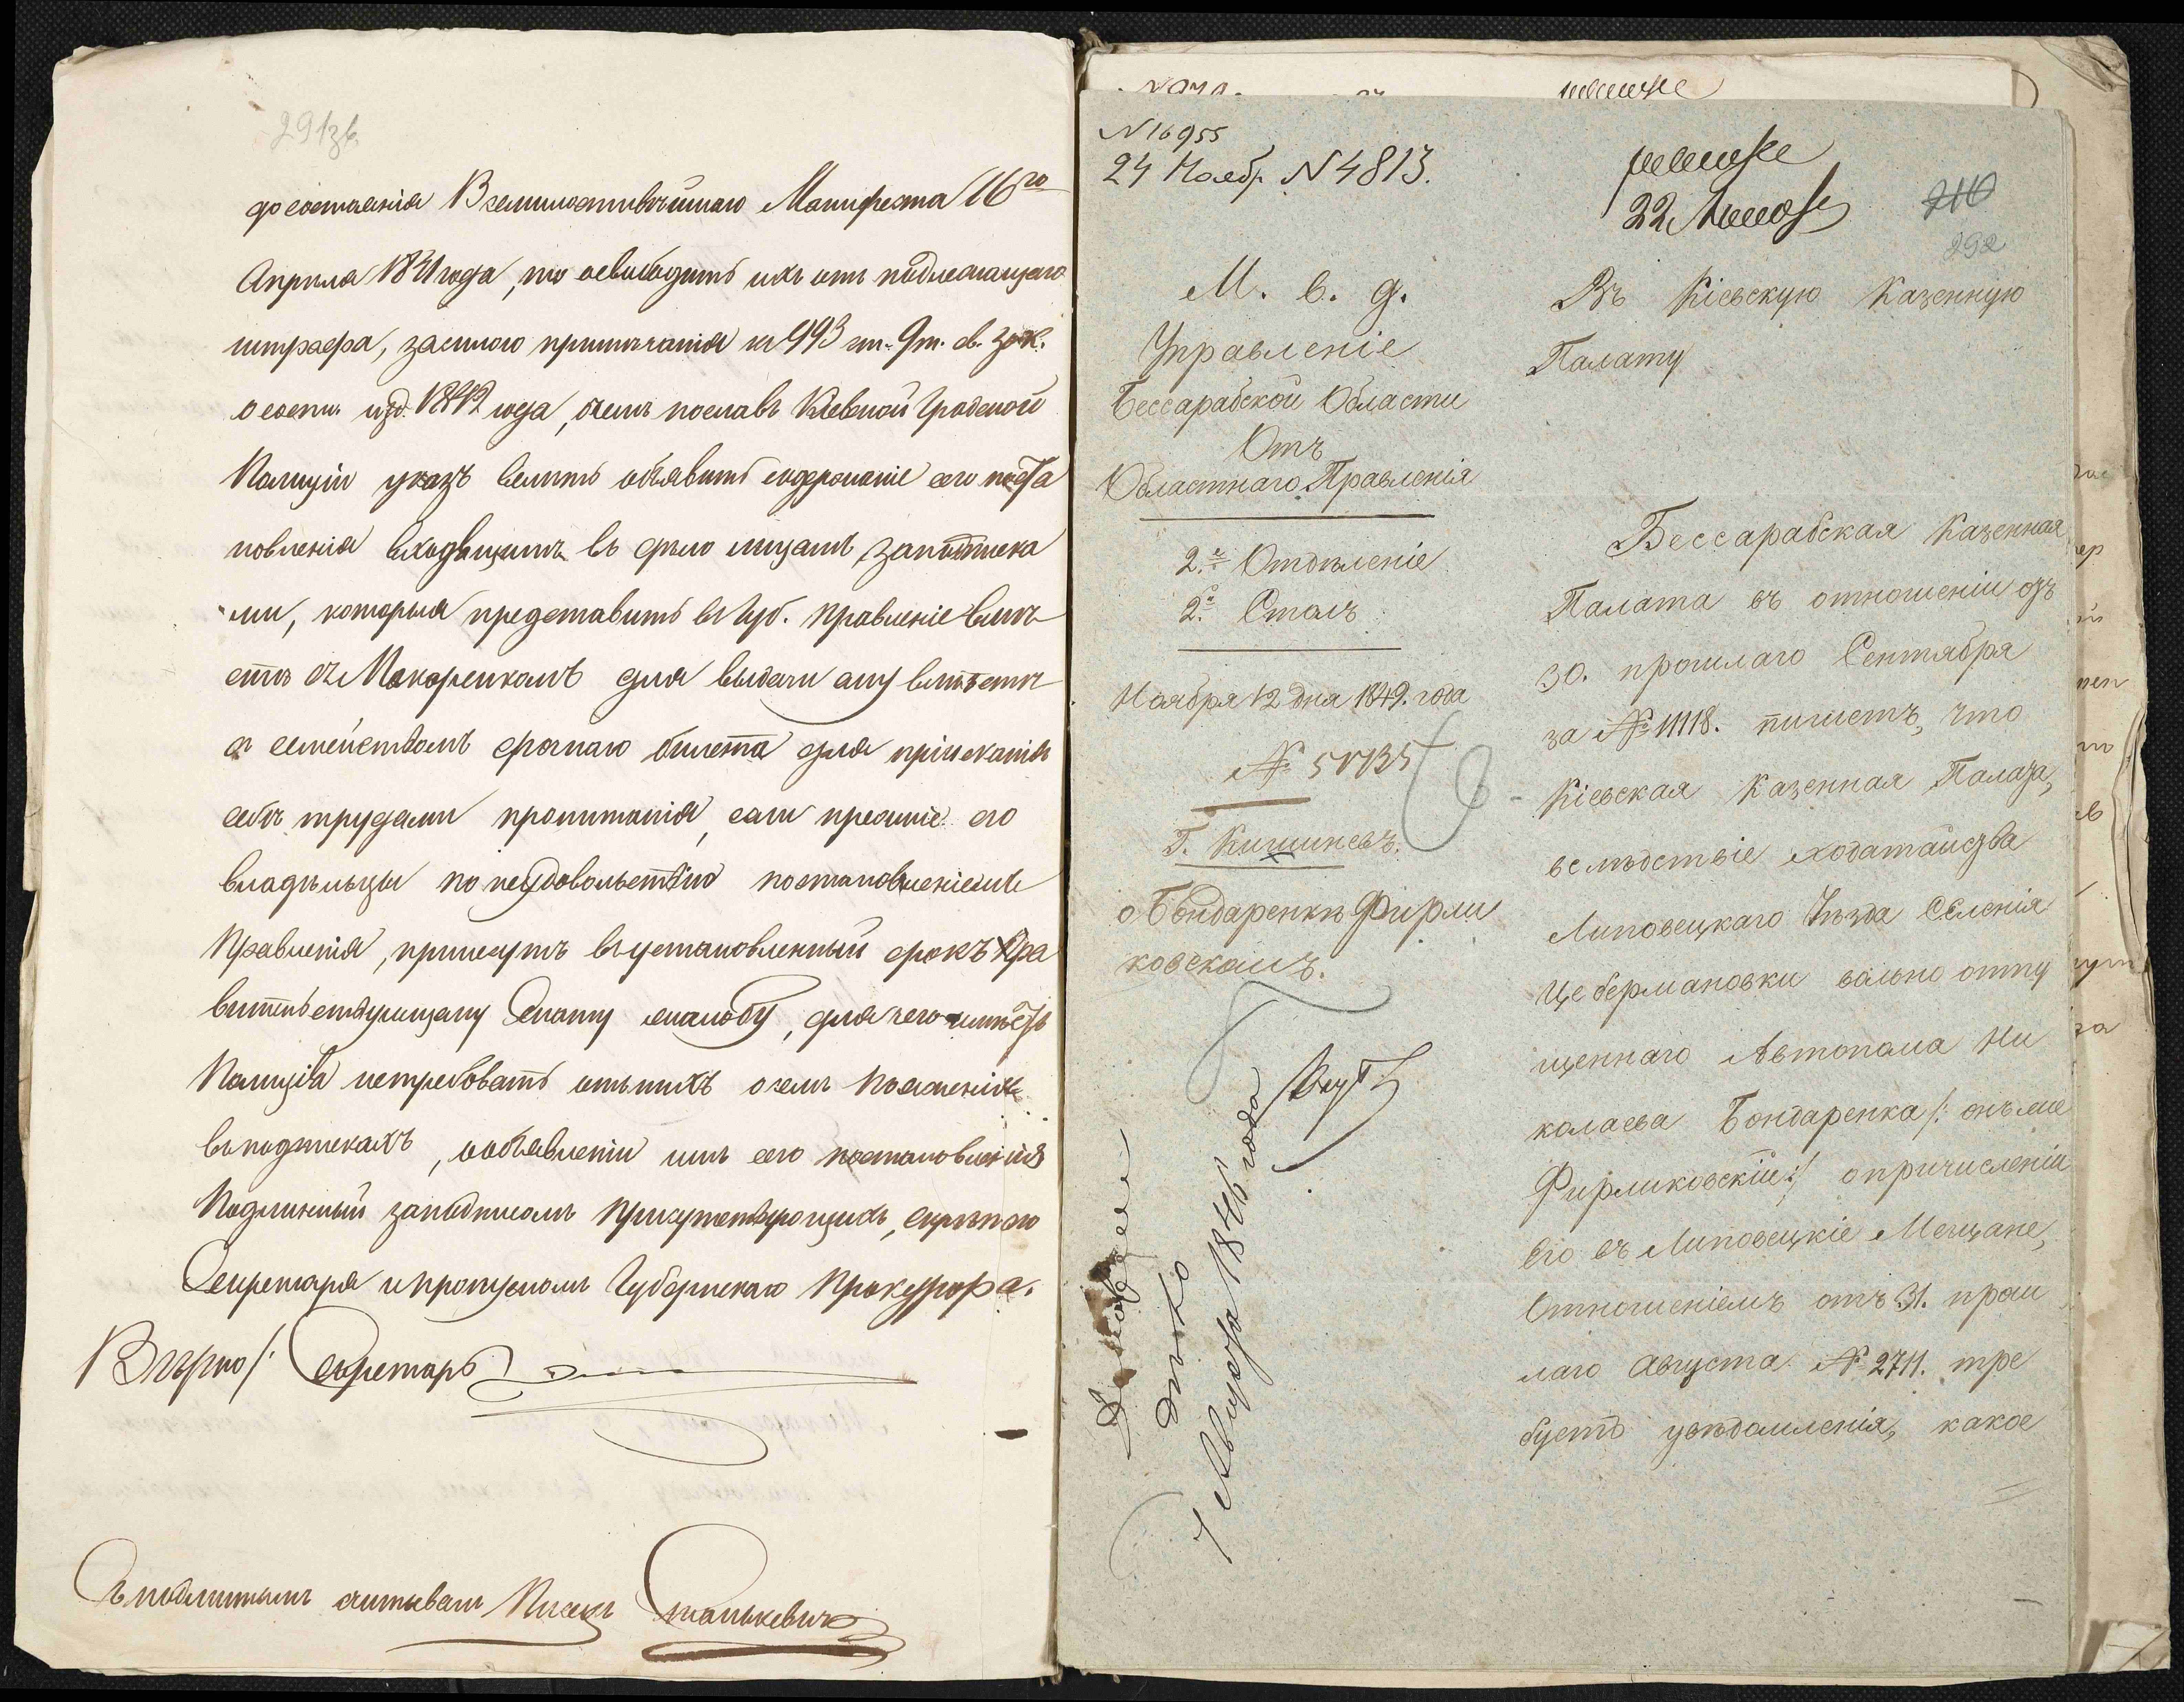 291зв
до состоянія Всемилостивѣйшаго Манифеста 16го
Апрѣля 1841 года, то освободить ихъ отъ подлежащаго
штрафа, засилою примѣчанія къ 993 ст. 9 т. св. Зак.
о сост. изд. 1842 года, о чемъ пославъ Кіевской Градской
Полиціи указъ велить объявить содержаніе сего поста
новленія входящимъ въ дѣло лицамъ заподписка
ми, которыя представить въ Губ. Правленіе вмѣ
стѣ съ Макаренкомъ для выдачи ему вмѣстѣ
съ семействомъ срочнаго билета для пріисканія
себѣ трудами пропитанія, если прежніе его
владѣльцы по неудовольствію постановленіемъ
Правленія, принесутъ въ установленный срокъ Пра
вительствующему Сенату жалобу, для чего имѣетъ
Полиція истребовать отъ нихъ о семъ поясненія
въ подпискахъ, о объявленіи имъ сего постановленія
Подлинный заподписомъ Присутствующихъ, скрѣпою
Секретаря и пропускомъ Губернскаго Прокурора.
Вѣрно /: Секретарь
Съ подлиннымъ считывалъ Писецъ Станькевичъ
N 16955
24 Ноябр. N 4813.
22 Ноября
210
292
М. в. д.
Управленіе
Бессарабской Области
Отъ
Областнаго Правленія
2.е Отдѣленіе
2.й Столъ
Ноября 12 дня 1849. года
№ 51135
Г. Кишиневъ.
о Бондаренкѣ Фирли
ковскомъ.
7 Августа 1846 года
Въ Кіевскую Казенную
Палату
Бессарабская Казенная
Палата въ отношеніи отъ
30. прошлаго Сентября
за № 11118. пишетъ, что
Кіевская Казенная Палата,
вслѣдствіе ходатайства
Липовецкаго Уѣзда Селенія
Цебермановки вольно отпу
щеннаго Автонома Ни
колаева Бондаренка /: онъ же
Фирликовскій :/ о причисленіи
его въ Липовецкіе Мещане,
Отношеніемъ отъ 31. прош
лаго Августа № 2711. тре
буетъ увѣдомленія, какое